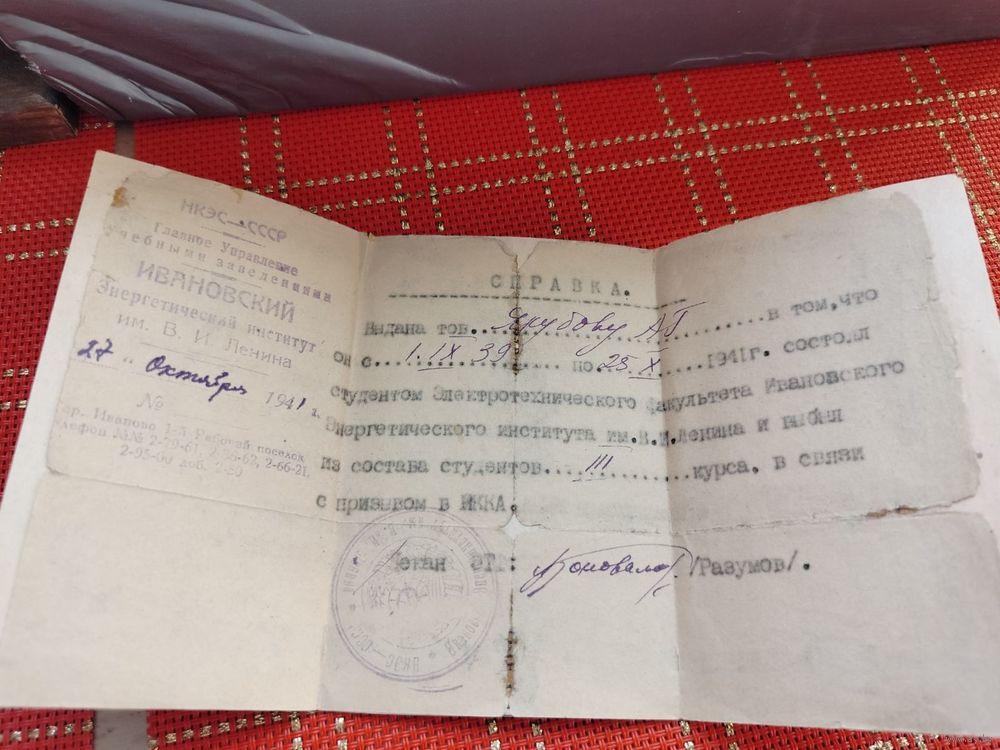 НКЭС СССР
Главное Управление
Учебными заведениями
ИВАНОВСКИЙ
Энергетический институт
им. В. И. Ленина
27 " Октября 1941 г.
№
гор. Иваново 1-й Рабочий поселок
телефон №№ 2-79-61, 2-62, 2-66-21,
2-95-00 доб. 2-80
СПРАВКА.
Выдана тов... Якубову АГ ...в том, что
он с... 1.IX 39 ... по 25.X ...1941г. состоял
студентом Электротехнического факультета Ивановского
Энергетического института им.В.И.Ленина и выбыл
из состава студентов... III ...курса, в связи
с призывом в РККА.
Декан ЭТ.: /Разумов/.
НКЭС—СССР